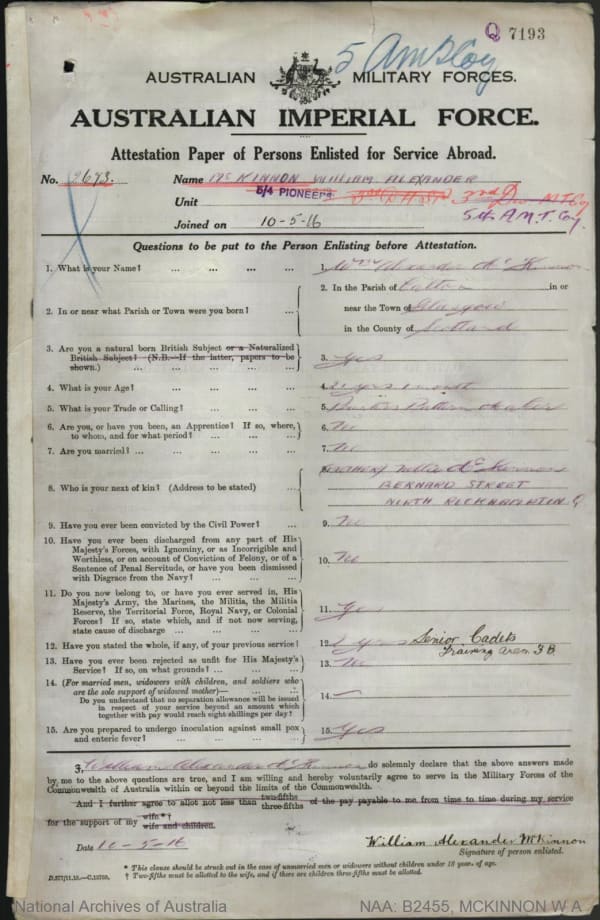 Q 7193
5 AMT Coy
AUSTRALIAN MILITARY FORCES.
AUSTRALIAN IMPERIAL FORCE.
Attestation Paper of Persons Enlisted for Service Abroad.
No. 2673. Name Mc KINNON WILLIAM ALEXANDER
Unit PIONEERS 3rd D M.T. Coy
5th A.M.T. Coy.
Joined on 10-5-16
Questions to be put to the Person Enlisting before Attestation.
1. What is your Name? ... ... ... ... 1. Wm Alexander Mc Kinnon
2. In or near what Parish or Town were you born? ... 2. In the Parish of Calton in or
near the Town of Glasgow
in the County of Scotland
3. Are you a natural born British Subject or a Naturalized
British Subject? (N.B.—If the latter, papers to be
shown.) ... ... ... ... 3. Yes
4. What is your Age? ... ... ... ... 4. 21 yrs 1 month
5. What is your Trade or Calling? ... ... ... 5. Maker
6. Are you, or have you been, an Apprentice? If so, where,
to whom, and for what period? ... ... ... 6. No
7. Are you married? ... ... ... ... 7. No
8. Who is your next of kin? (Address to be stated) ... 8. (MOTHER) Nellie Mc Kinnon
BERNARD STREET
NORTH ROCKHAMPTON Q
9. Have you ever been convicted by the Civil Power? ... 9. No
10. Have you ever been discharged from any part of His
Majesty's Forces, with Ignominy, or as Incorrigible and
Worthless, or on account of Conviction of Felony, or of a
Sentence of Penal Servitude, or have you been dismissed
with Disgrace from the Navy? ... ... ... 10. No
11. Do you now belong to, or have you ever served in, His
Majesty's Army, the Marines, the Militia, the Militia
Reserve, the Territorial Force, Royal Navy, or Colonial
Forces? If so, state which, and if not now serving,
state cause of discharge ... ... ... ... 11. Yes
12. Have you stated the whole, if any, of your previous service? 12. 2 Years Senior Cadets
Training Area 3B
13. Have you ever been rejected as unfit for His Majesty's
Service? If so, on what grounds? ... ... ... 13. No
14. (For married men, widowers with children, and soldiers who
are the sole support of widowed mother)— ... ...
Do you understand that no separation allowance will be issued
in respect of your service beyond an amount which
together with pay would reach eight shillings per day? 14. —
15. Are you prepared to undergo inoculation against small pox
and enteric fever? ... ... ... ... 15. Yes
I, William Alexander Mc Kinnon do solemnly declare that the above answers made
by me to the above questions are true, and I am willing and hereby voluntarily agree to serve in the Military Forces of the
Commonwealth of Australia within or beyond the limits of the Commonwealth.
*And I further agree to allot not less than two-fifths three-fifths of the pay payable to me from time to time during my service
for the support of my wife*† wife and children.
Date 10-5-16 William Alexander McKinnon
Signature of person enlisted.
* This clause should be struck out in the case of unmarried men or widowers without children under 18 year. of age.
† Two-fifths must be allotted to the wife, and if there are children three-fifths must be allotted.
National Archives of Australia NAA: B2455, MCKINNON W A